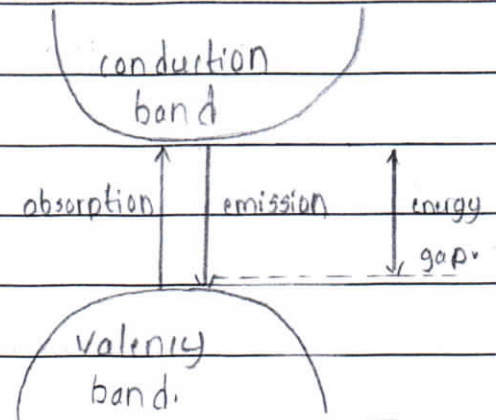 conduction
band
absorption
emission
energy
gap.
valency
band.